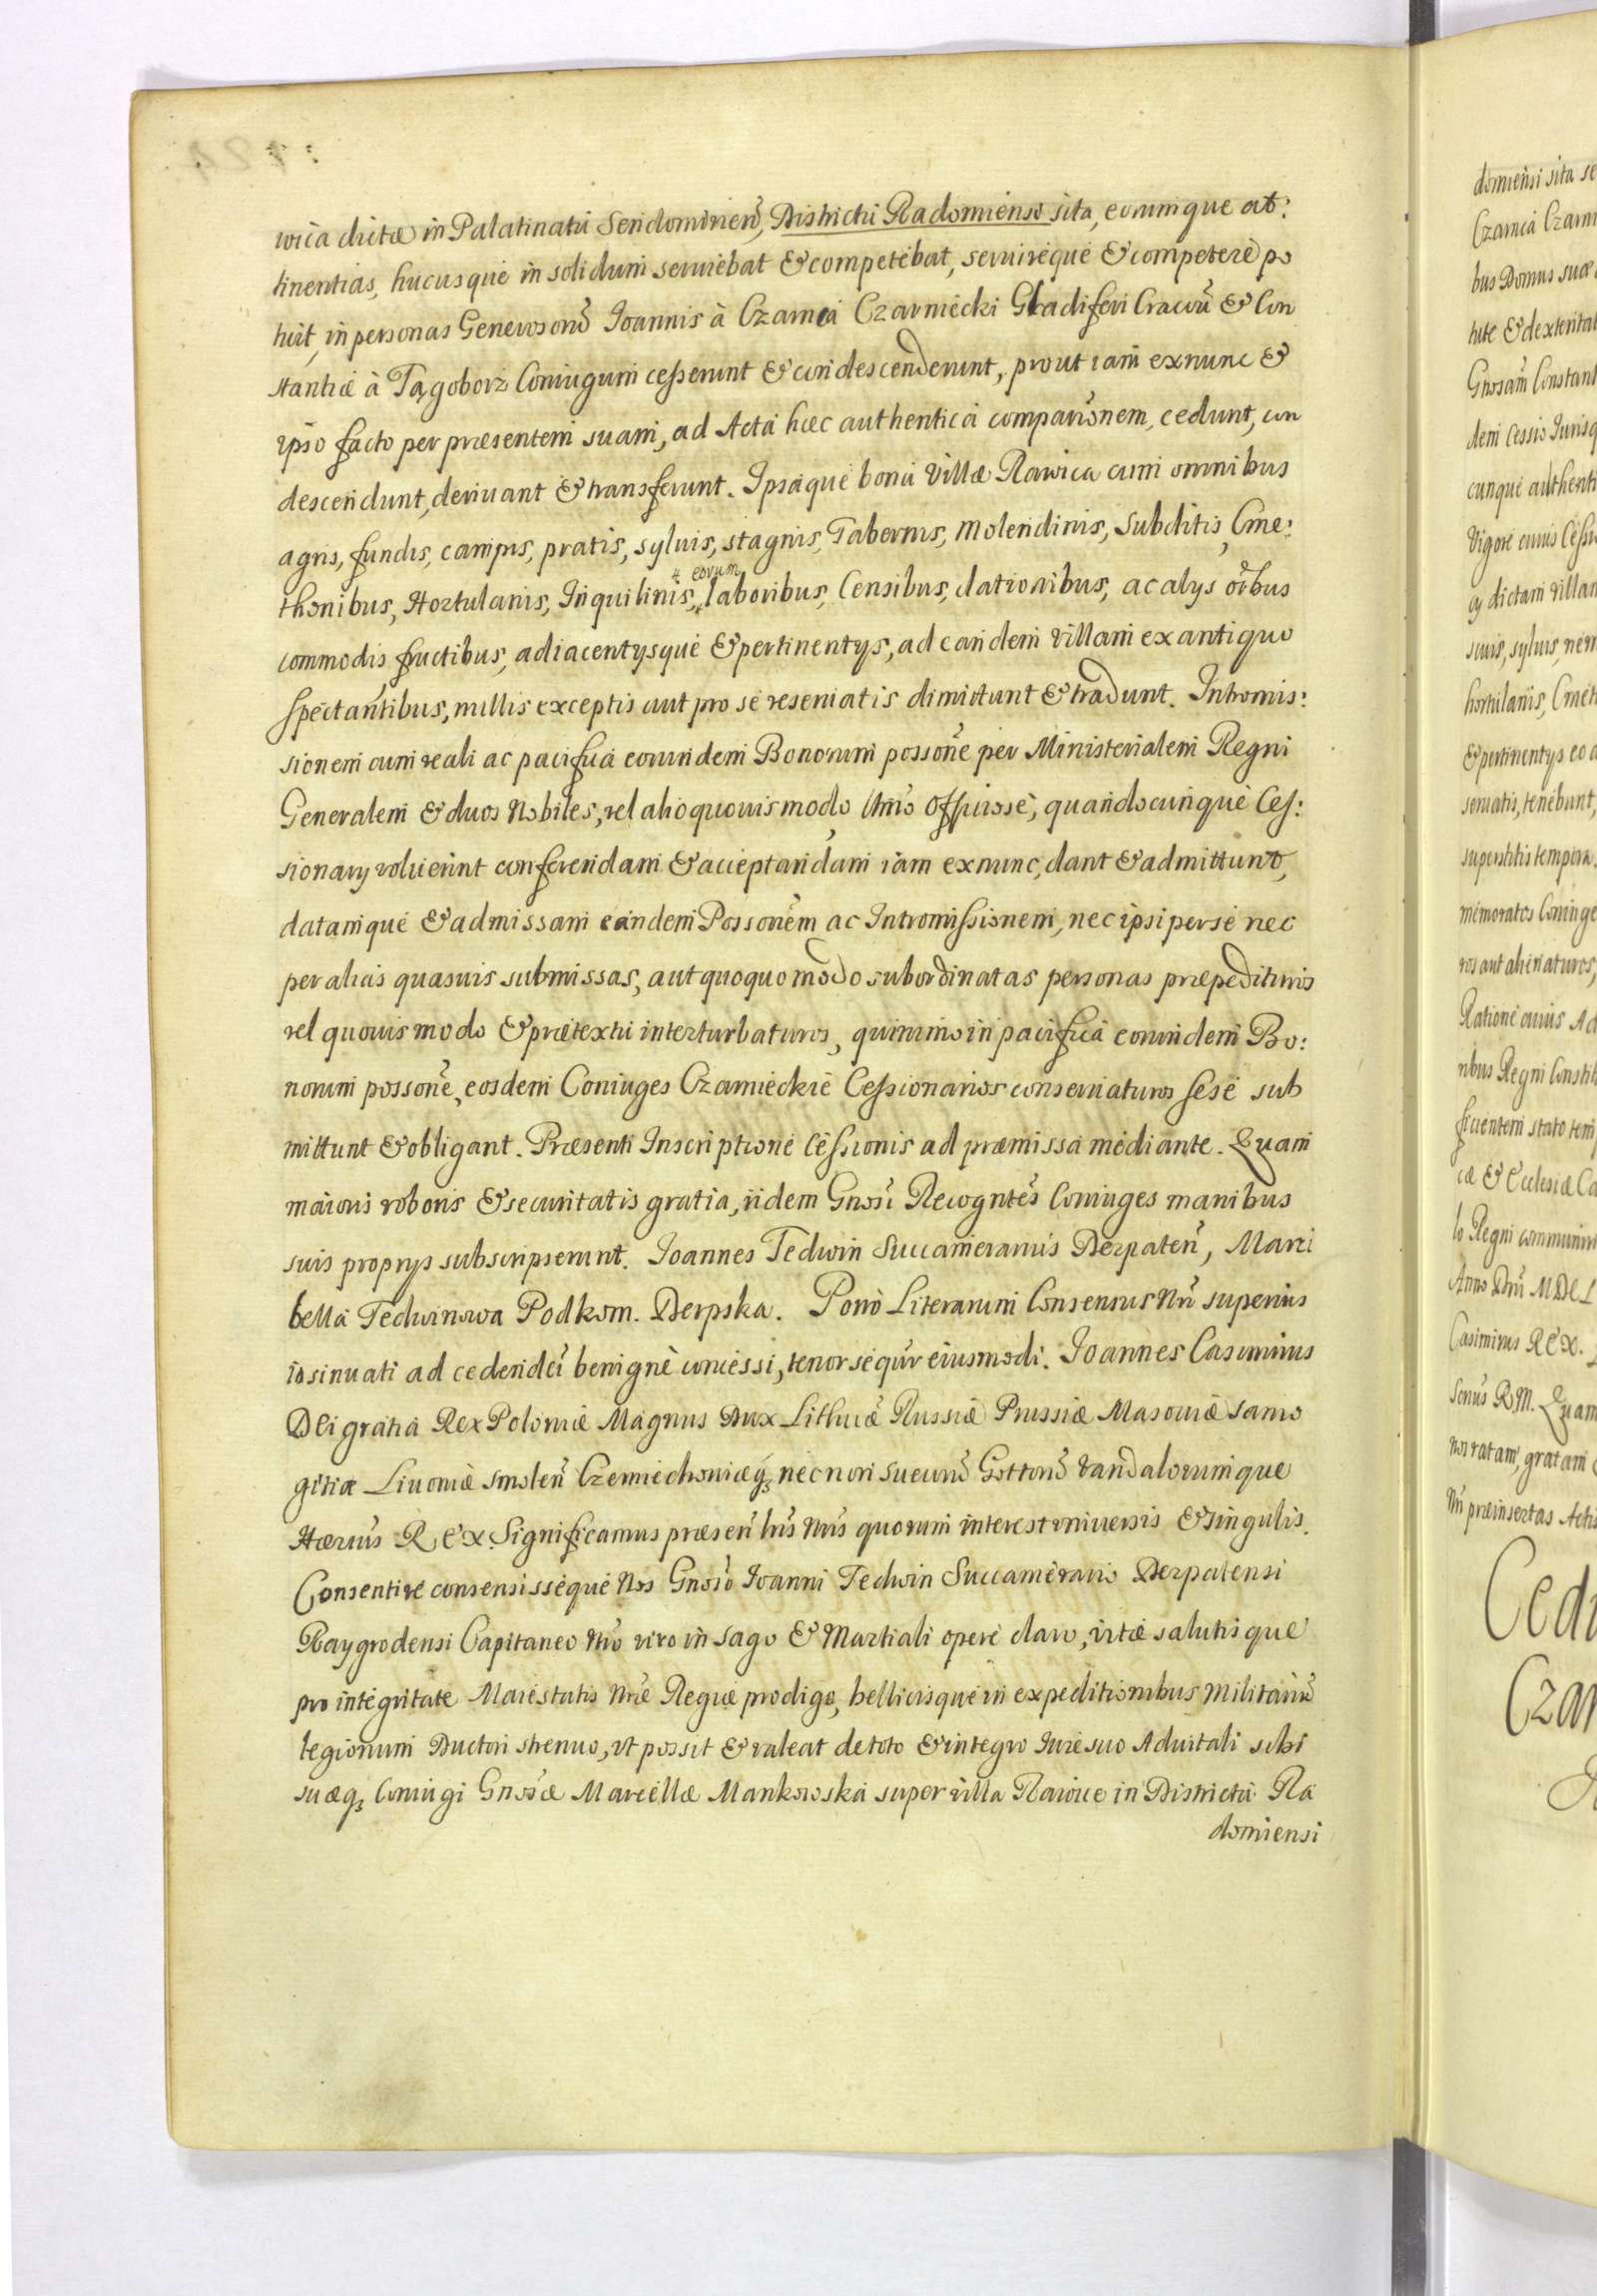 wica dictæ in Palatinatu Sendomirieñ, Districtu Radomiensi sita, eorumque at:
tinentias, hucusque in solidum serviebat & competebat, servireque & competere po
tuit, in personas Generosorũ Joannis à Czarnca Czarniecki Gladiferi Cracoũ & Con
stantiæ à Tągoborz Coniugum cesserunt & condescenderunt, prout iam exnunc &
ipso facto per præsentem suam, ad Acta hæc authentica comparonem, cedunt, con
descendunt, derivant & transferunt. Ipsaque bona Villæ Rawica cum omnibus
agris, fundis, campis, pratis, sylvis, stagnis, Tabernis, Molendinis, Subditis, Cme:
thonibus, Hortulanis, Inquilinis, eorum laboribus, Censibus, dationibus, ac alys oĩbus
commodis, fructibus, adiacentysque & pertinentys, ad eandem villam ex antiquo
spectantibus, nullis exceptis aut pro se reservatis dimittunt & tradunt. Intromis:
sionem cum reali ac pacifica eorundem Bonorum possõne per Ministerialem Regni
Generalem & duos Nobiles, vel alio quovis modo officiose, quandocunque Ces:
sionary voluerint conferendam & acceptandam iam exnunc, dant & admittunt,
datamque & admissam eandem Possonẽm ac Intromissionem, nec ipsi per se nec
per alias quasvis submissas, aut quoquo modo subordinatas personas præpedituros
vel quovis modo & prætextu interturbaturos, quinimo in pacifica eorundem Bo:
norum possõne, eosdem Coniuges Czarnieckie Cessionarios conservaturos sese sub
mittunt & obligant. Præsenti Inscriptione Cessionis ad præmissa mediante. Quam
maioris roboris & securitatis gratia, iidem Gnosi Recogntes Coniuges manibus
suis proprys subscripserunt. Joannes Tedwin Succamerarius Derpateñ, Marci
bella Tedwinowa Podkom. Derpska. Porro Literarum Consensus Nri superius
insinuati ad cedendũ benigne concessi, tenor sequr eiusmodi. Joannes Casimirus
Dei gratia Rex Poloniæ Magnus Dux Lithuæ Russiæ Prussiæ Masoviæ Samo
gitiæ Livoniæ Smoleñ Czerniechoviæq, necnon Suecorũ Gottorũ Vandalorumque
Hærius REX. Significamus præseñ lrĩs Nrĩs quorum interest universis & singulis.
Consentire consensisseque Nos Gnoso Joanni Tedwin Succamerario Derpatensi
Raygrodensi Capitaneo Nro viro in sago & Martiali opere claro, vitæ salutisque
pro integritate Maiestatis Nræ Regiæ prodigo, bellicisque in expeditionibus Militariũ
legionum Ductori strenuo, ut possit & valeat de toto & integro Iure suo Advitali sibi
suæq Coniugi Gnosæ Marcellæ Mankowska super villa Rawice in Districtu Ra
domiensi